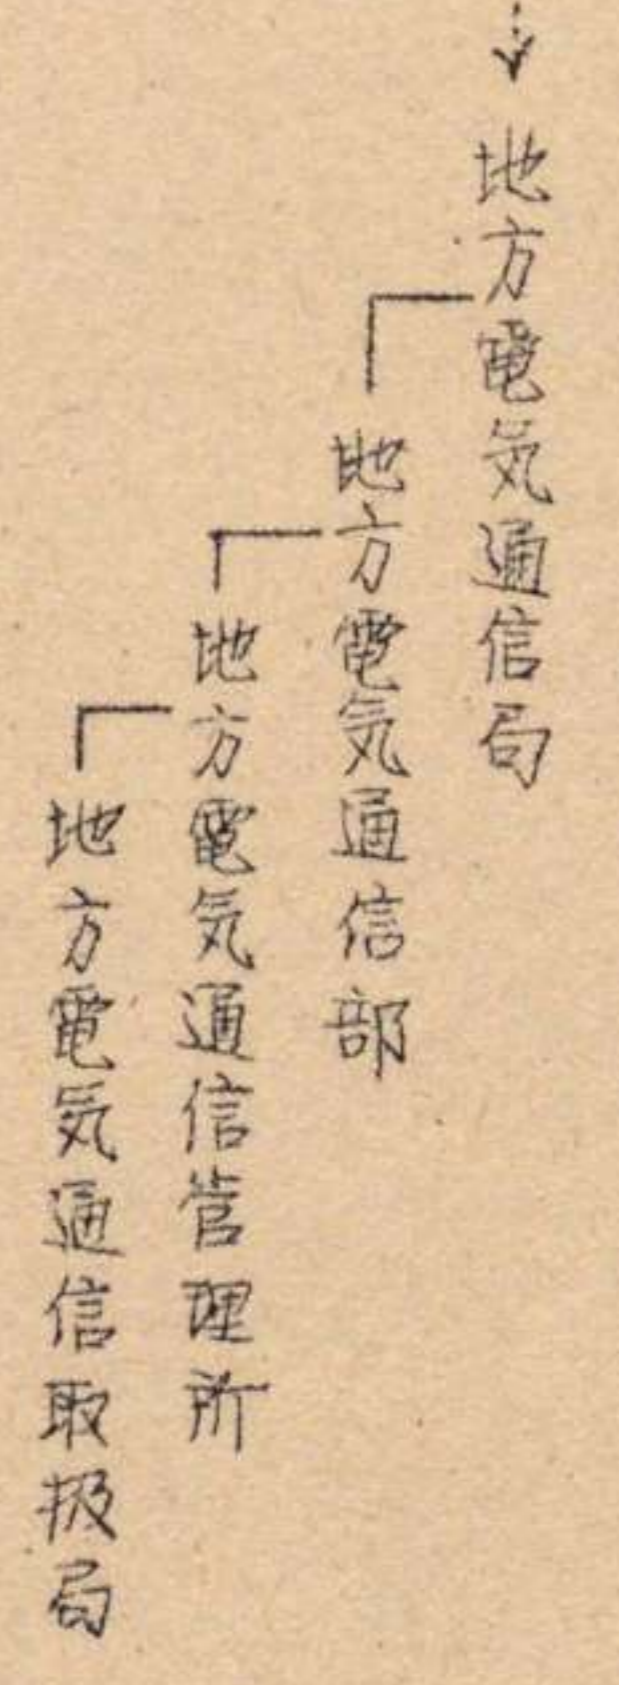 地方電気通信局
地方電気通信部
地方電気通信管理所
地方電気通信取扱局